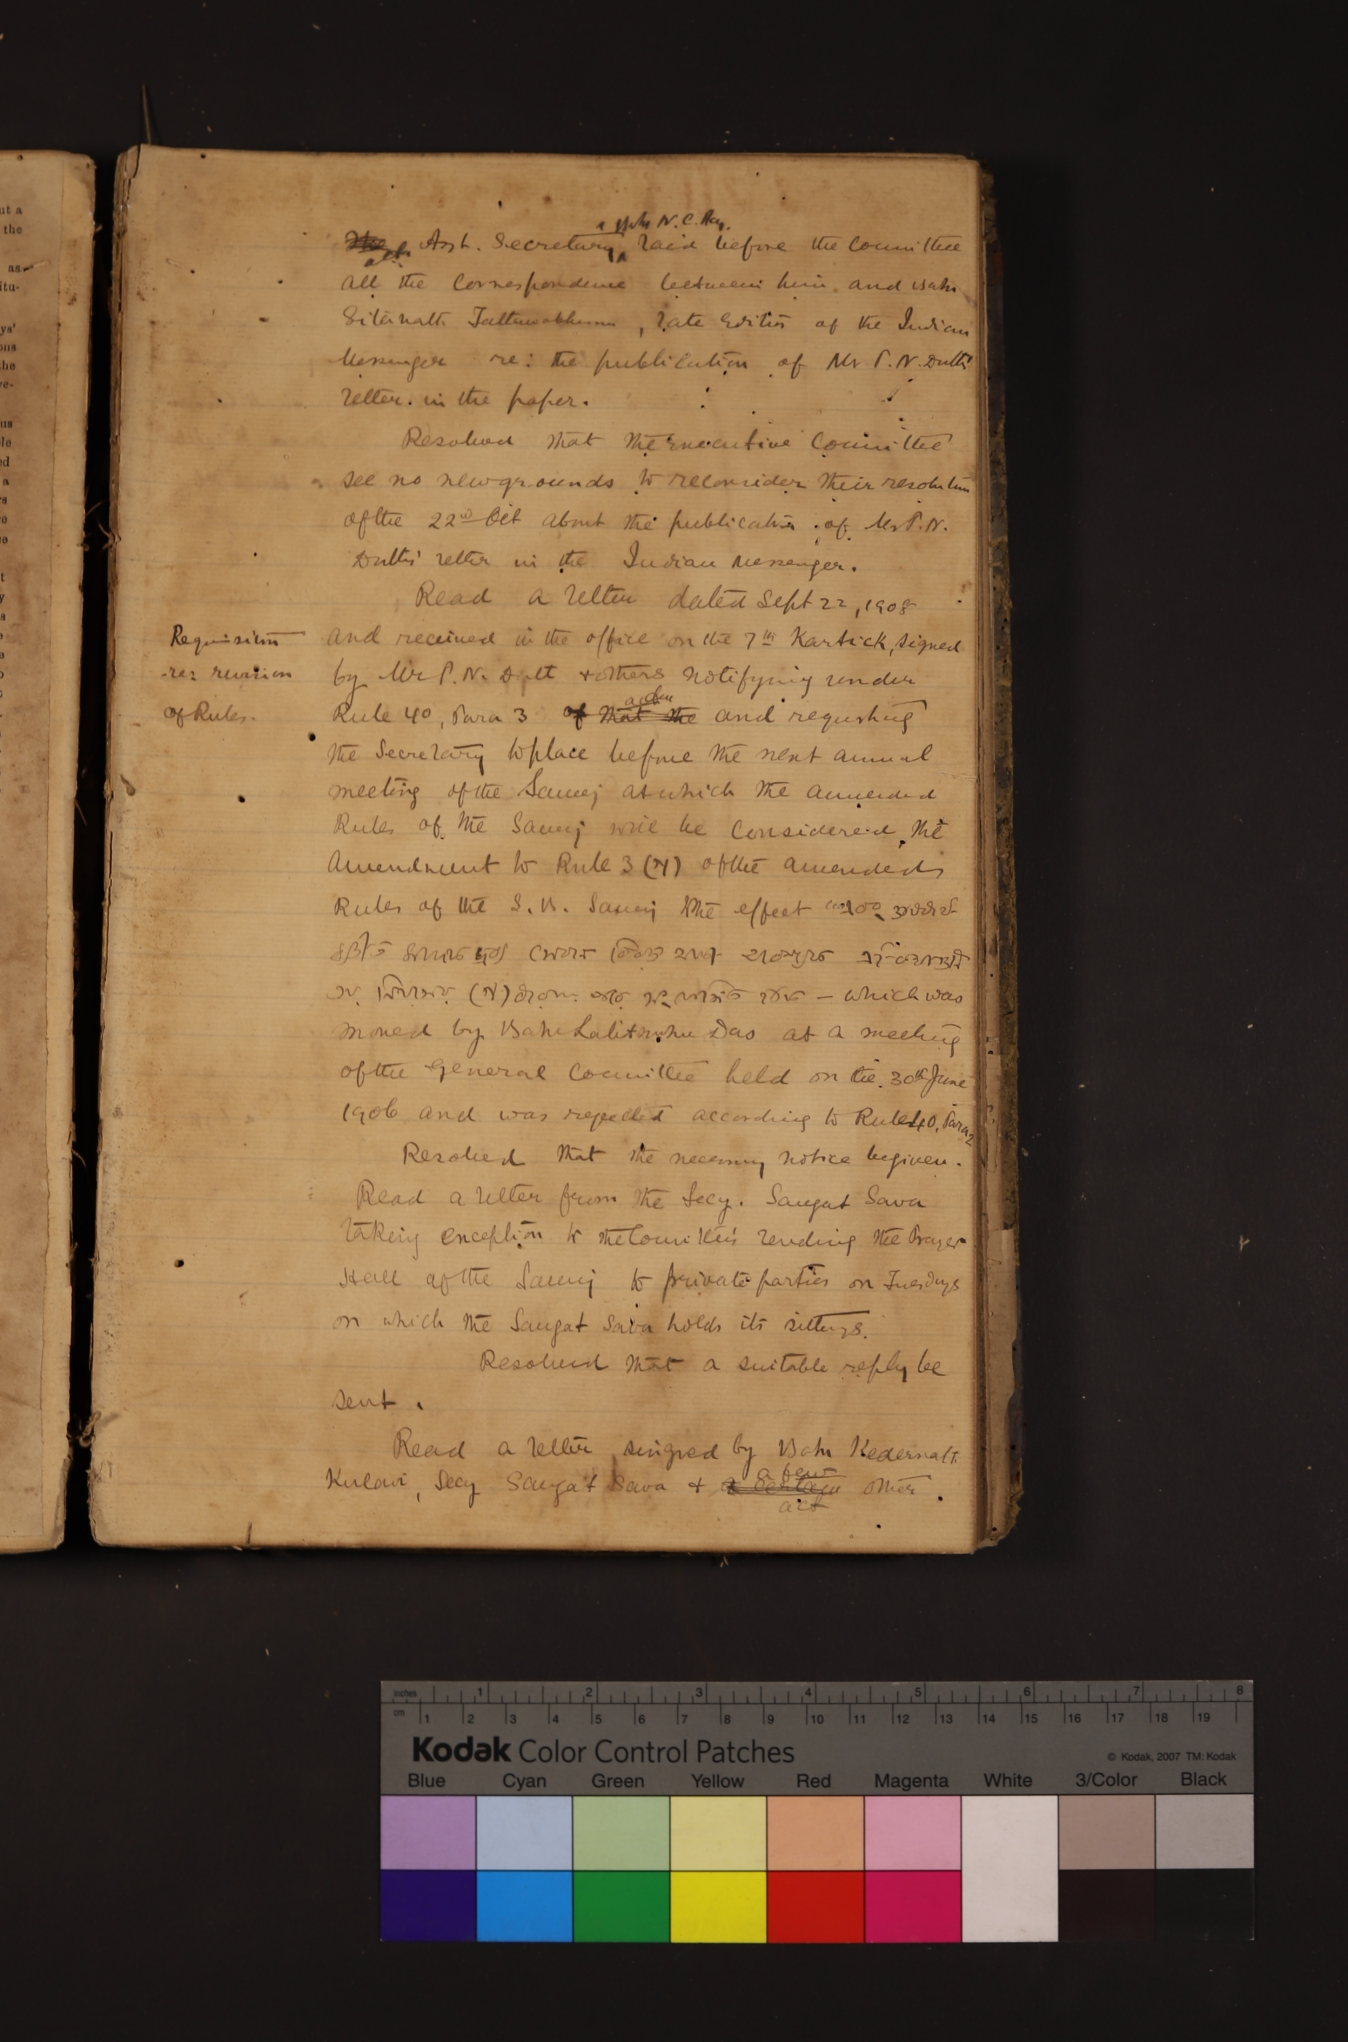 Asst. Secretary, Babu N. C. Ray, laid before the Committee
all the correspondence between him and Babu
Sitanath Tattwabhusan, late Editor of the Indian
Messenger re: the publication of Mr P. N. Dutt's
letter in the paper.
Resolved that the Executive Committee
see no new grounds to reconsider their resolution
of the 22nd Oct about the publication of Mr P. N.
Dutt's letter in the Indian Messenger.
Read a letter dated Sept 22, 1908
Requisition
re: revision
of Rules.
and received in the office on the 7th Kartick, signed
by Mr P. N. Dutt & others notifying under
Rule 40, Para 3 and requsting
the Secretary to place before the next annual
meeting of the Samaj at which the amended
Rules of the Samaj will be considered, the
Amendment to Rule 3 of the amended
Rules of the S. B. Samaj the effect
– which was
moved by Babu Lalit Das at a meeting
of the General Committee held on the 30th June
1906 and was rejected according to Rule 40, Para 2
Resolved that the necessary notice be given.
Read a letter from the Secy. Sangat Sava
taking exception to the Committee's lending the Prayer
Hall of the Samaj to private parties on Tuesdays
on which the Sangat Sava holds its sittings.
Resolved that a suitable reply be
sent.
Read a letter singned by Babu Kedernath
Kulavi, Secy Sangat Sava & a few other.
Kodak Color Control Patches
© Kodak, 2007 TM: Kodak
inches 1 2 3 4 5 6 7 8
cm 1 2 3 4 5 6 7 8 9 10 11 12 13 14 15 16 17 18 19
Blue Cyan Green Yellow Red Magenta White 3/Color Black